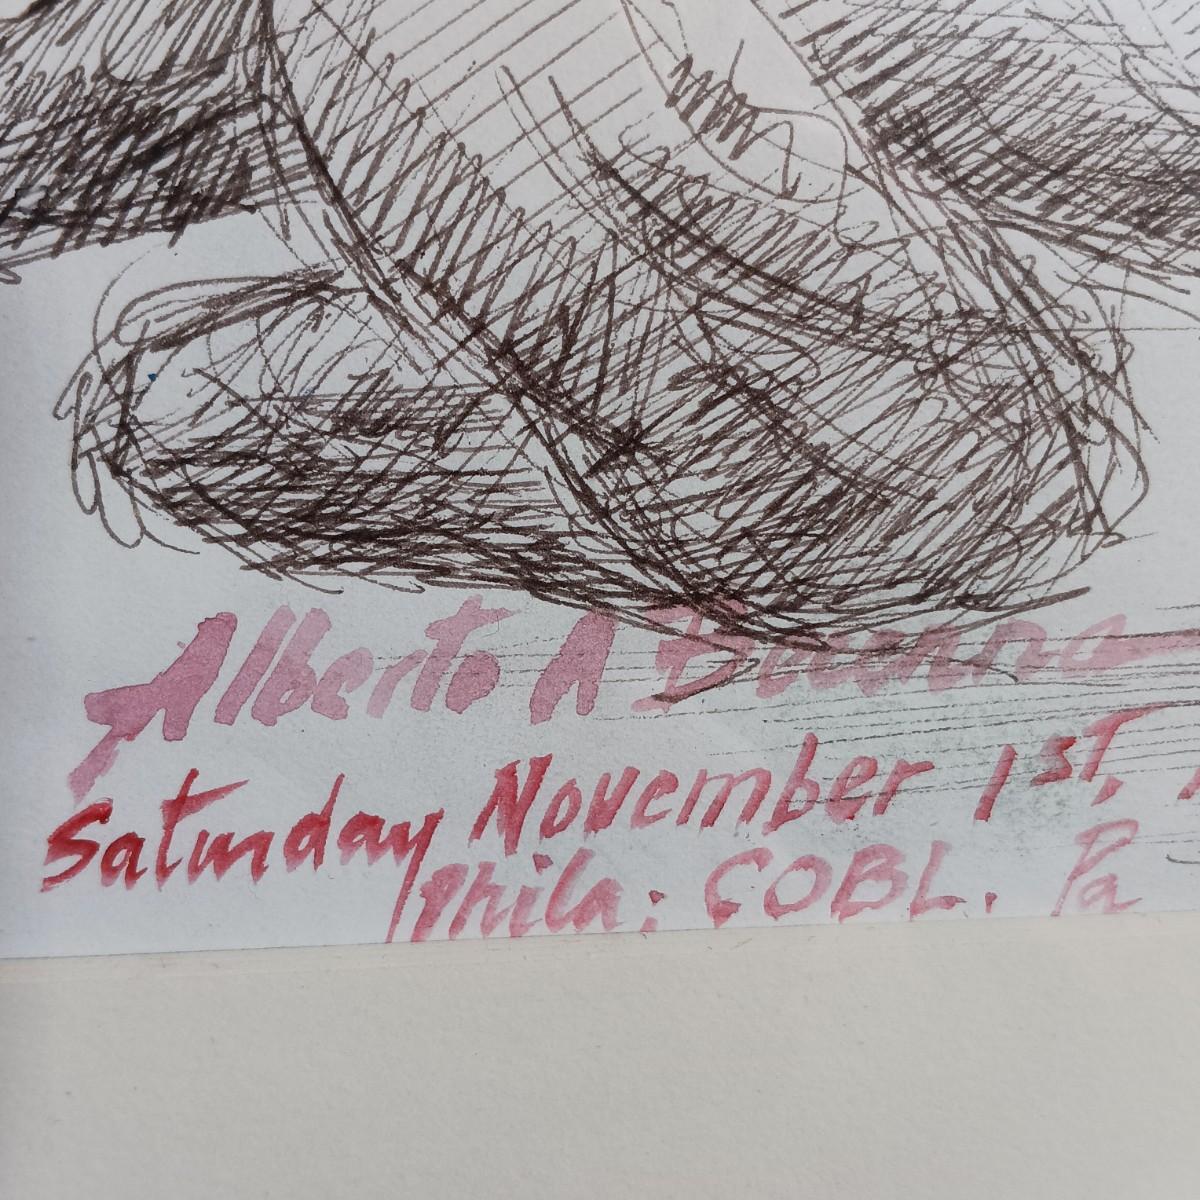 Alberto A
Saturday November 1ST.
Phila; COBL. Pa